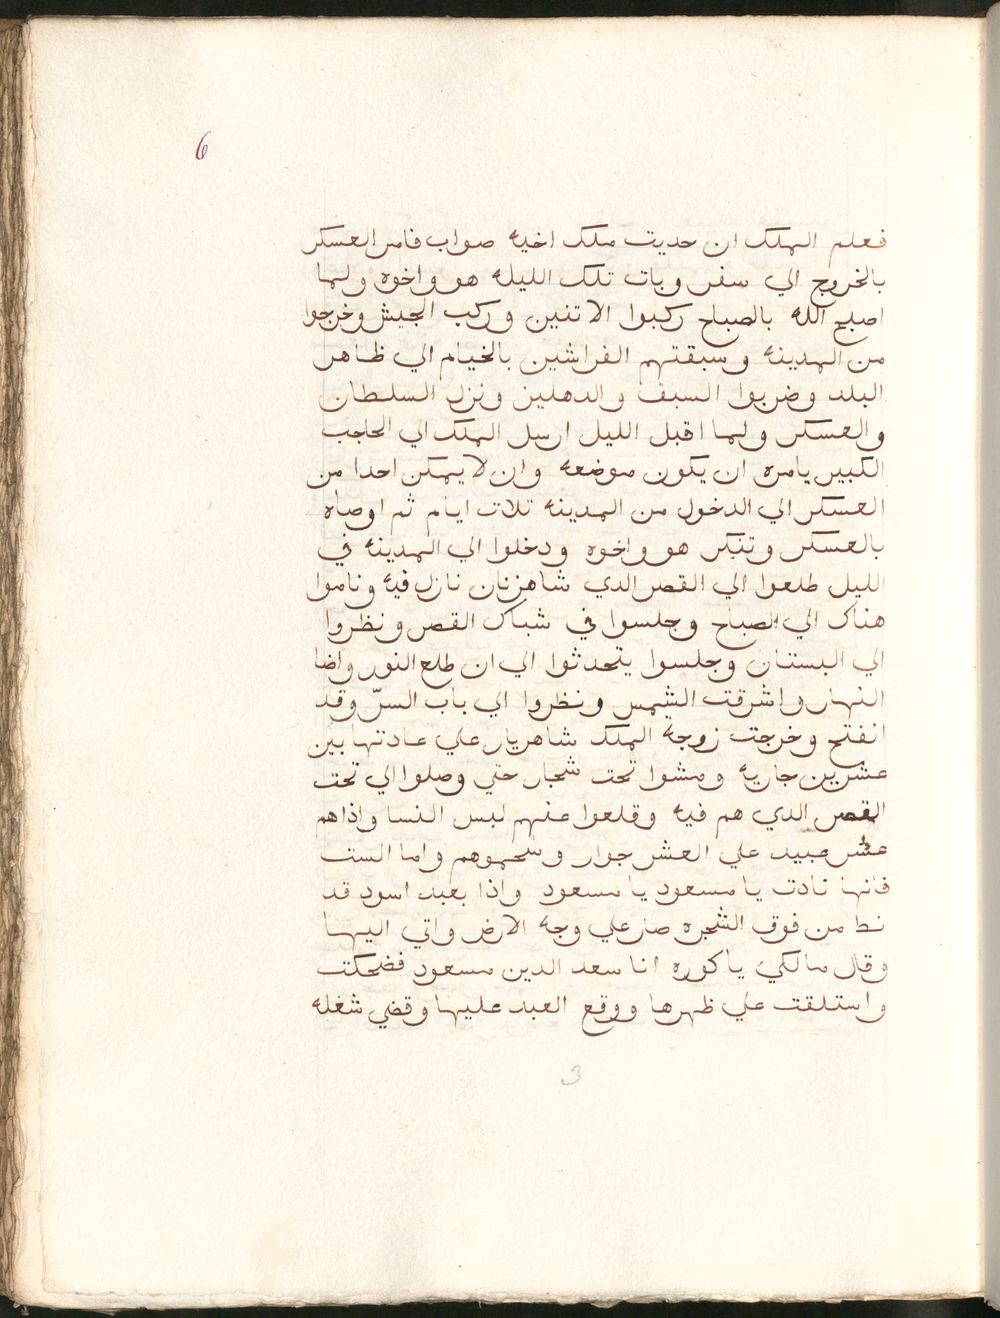 6
فعلم الملك ان حديت ملك اخيه صواب فامر العسكر
بالخروج الي سفر وبات تلك الليله هو واخوه ولما
اصبح الله بالصباح ركبوا الاتنين وركب الجيش وخرجوا
من المدينه وسبقتهم الفراشين بالخيام الي ظاهر
البلد وضربوا السبف والدهليز ونزل السلطان
والعسكر ولما اقبل الليل ارسل الملك الي الحاجب
الكبير يامره ان يكون موضعه وان لا يمكن احدا من
العسكر الي الدخول من المدينه تلات ايام ثم اوصاه
بالعسكر وتنكر هو واخوه ودخلوا الي المدينه في
الليل طلعوا الي القصر الدي شاهزنان نازل فيه وناموا
هناك الي الصباح وجلسوا في شباك القصر ونظروا
الي البستان وجلسوا يتحدثوا الي ان طلع النور واضا
النهار واشرقت الشمس ونظروا الي باب السرّ وقد
انفتح وخرجت زوجه الملك شاهريار علي عادتها بين
عشرين جاريه ومشوا تحت شجار حتي وصلوا الي تحت
القصر الدي هم فيه وقلعوا عنهم لبس النسا واذاهم
عشر عبيد علي العشر جوار وشحموهم واما الست
فانها نادت يا مسعود يا مسعود واذا بعبد اسود قد
نط من فوق الشجره صار علي وجه الارض واتي اليها
وقال مالكي يا كوره انا سعد الدين مسعود فضحكت
واستلقت علي ظهرها ووقع العبد عليها وقضي شغله
3